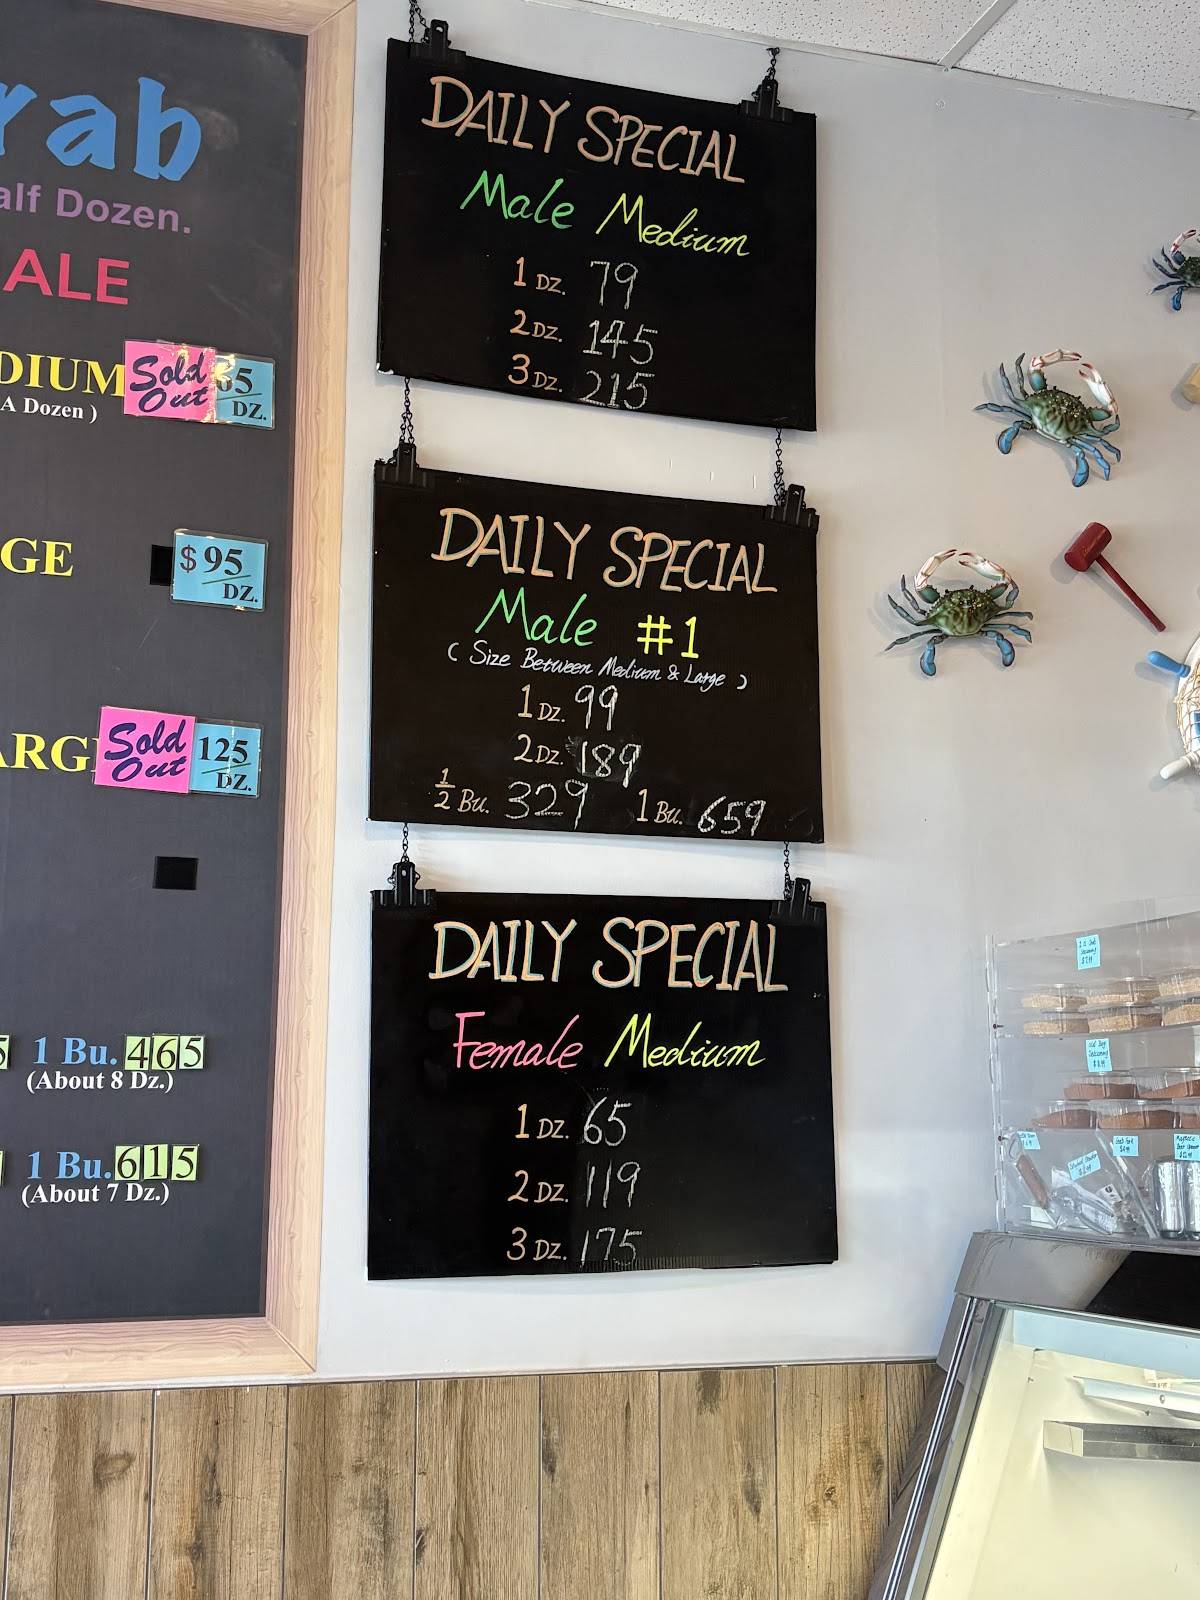 rab
alf Dozen.
ALE
DIUM Sold Out 65 DZ.
A Dozen )
GE $95 DZ.
ARGE Sold Out 125 DZ.
5 1 Bu. 465
(About 8 Dz.)
1 Bu. 615
(About 7 Dz.)
DAILY SPECIAL
Male Medium
1 DZ. 79
2 DZ. 145
3 DZ. 215
DAILY SPECIAL
Male #1
( Size Between Medium & Large )
1 DZ. 99
2 DZ. 189
1/2 Bu. 329 1 Bu. 659
DAILY SPECIAL
Female Medium
1 DZ. 65
2 DZ. 119
3 DZ. 175
Old Bay
Seasoning